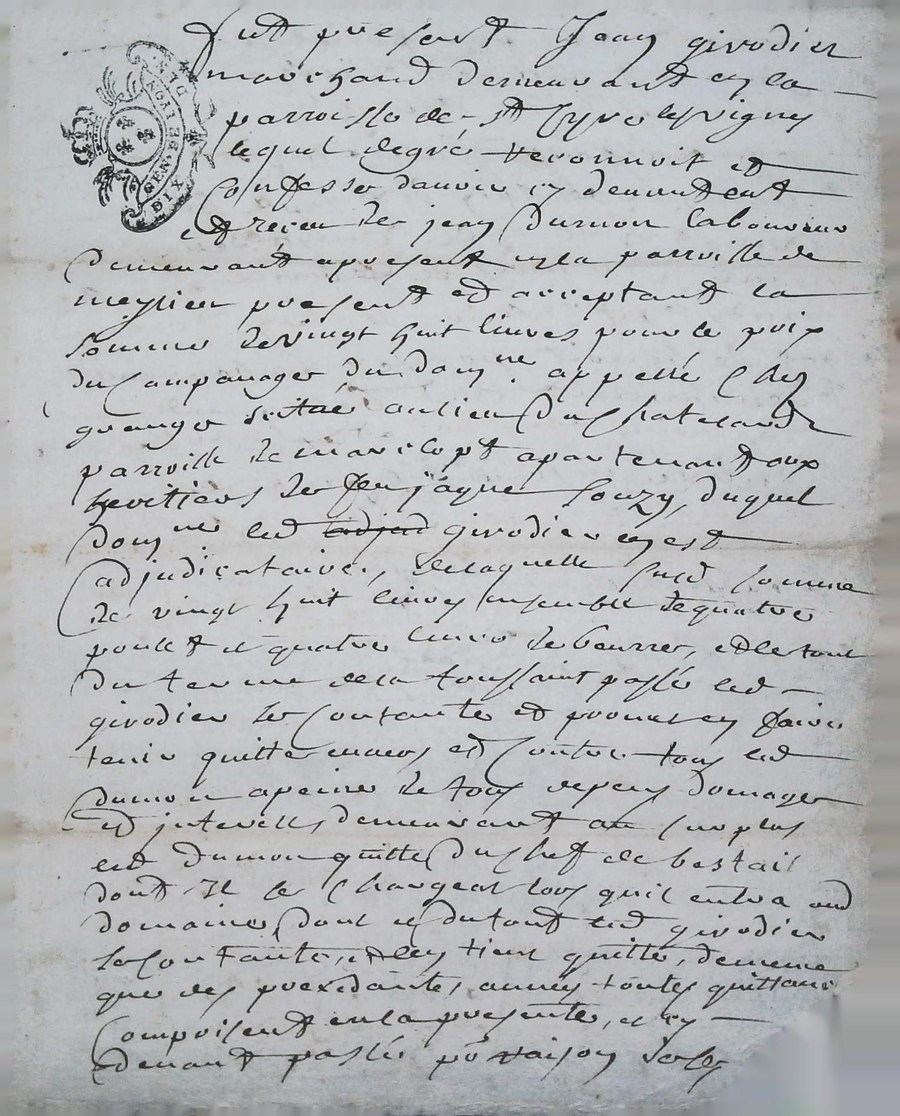 GEN. DE LYON
DIX DEN
Fut present Jean girodier
marchand demeurant en la
parroisse de St Cyr les vignes
lequel de gré reconnoit et
Confesse davoir cy devent eut
et receu de jean Dumon laboureur
Demeurant apresent en la parroisse de
meylieu present et acceptant la
somme de vingt huit livres pour le prix
du Campanager du domne appellé Chez
granger sittué au lieu Du Chatelard
parroisse de marclopt apartenant aux
heritiers de feu jaque Souzy, duquel
domne led adjud girodier en est
adjudicataire, de laquelle susd somme
de vingt huit livres ensemble de quatre
poulet et quatre livres de beurre, et le tout
du terme de la toussaint passée led
girodier se Contante et promet en faire
tenir quitte envers et Contre tous led
dumon a peine de tous depens domages
et interests, demeurant au surplus
led Dumon quitte Du Chef de bestail
dont Il se Chargeat lors quil entra aud
domaine, dont et du tout led girodier
se Contante, et len tient quitte, de meme
que des precedantes années toutes quittances
Comprisent en la presente, et cy
devant passée par raison de les